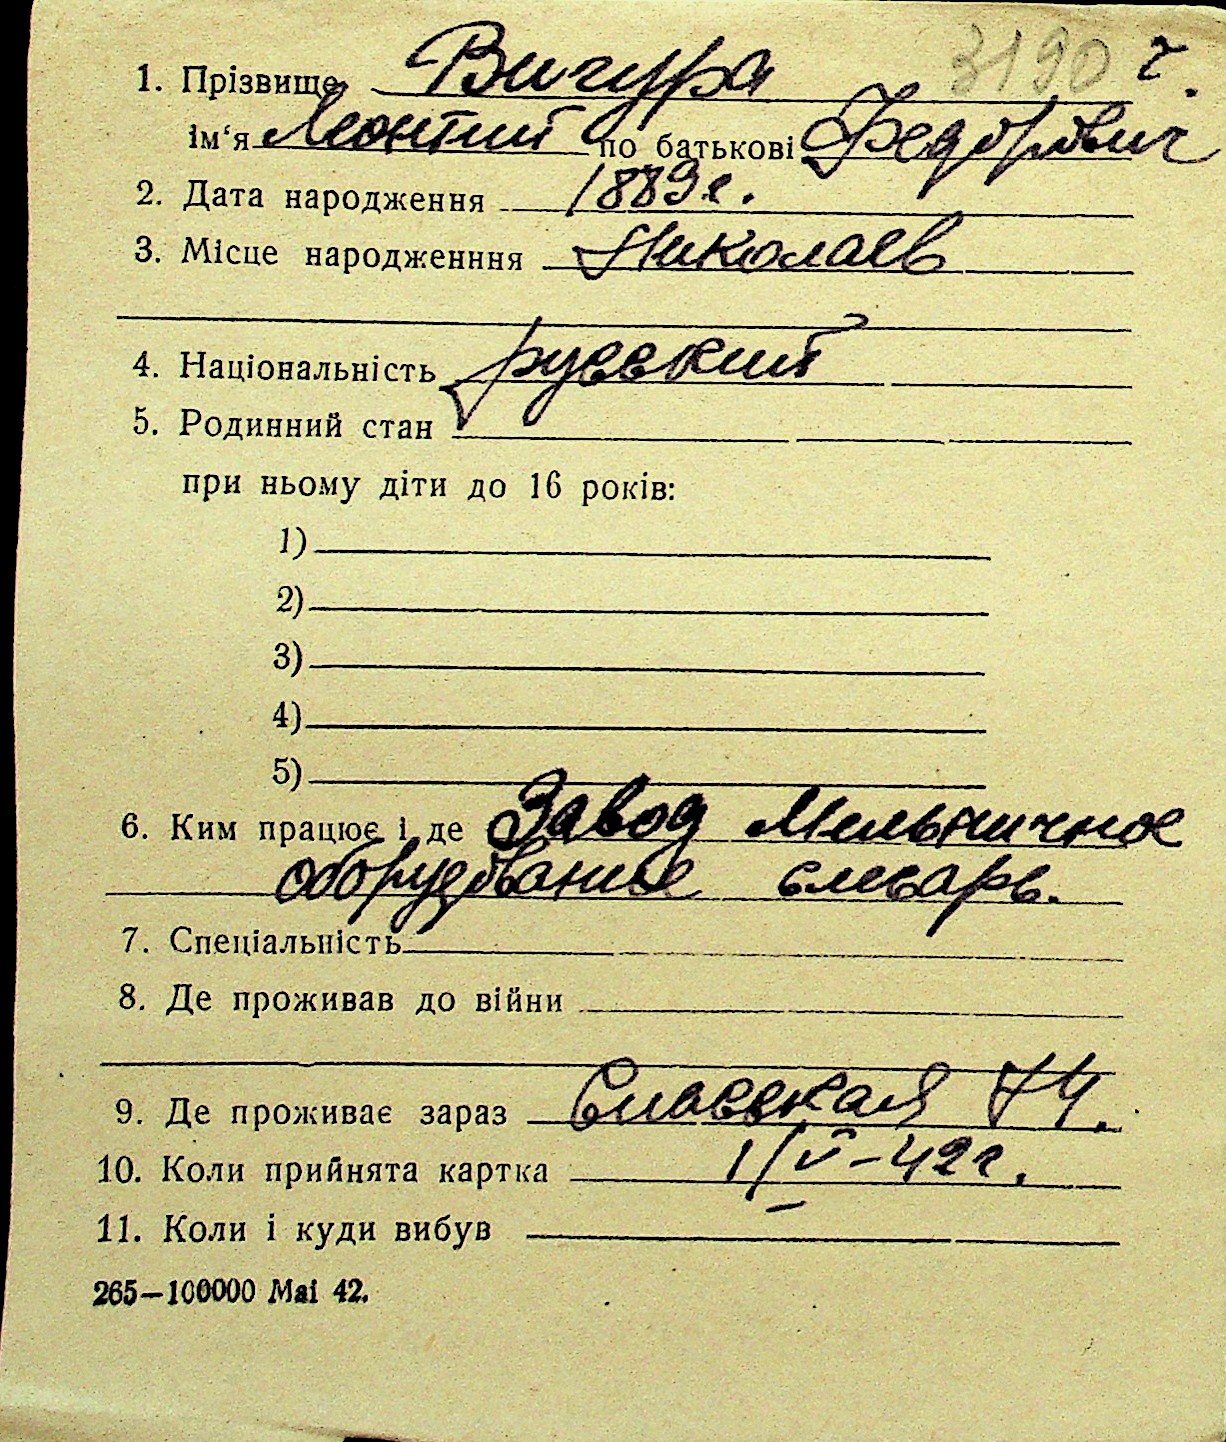 3190 г.
1. Прізвище Вигура
ім‘я Леонтий по батькові Федорович
2. Дата народження 1889 г.
3. Місце народженння Николаев
4. Національність русский
5. Родинний стан
при ньому діти до 16 років:
1)
2)
3)
4)
5)
6. Ким працює і де Завод Мельничное
оборудование слесарь.
7. Спеціальність
8. Де проживав до війни
9. Де проживає зараз Спасская 74.
10. Коли прийнята картка 1/V-42 г.
11. Коли і куди вибув
265—100000 Mai 42.